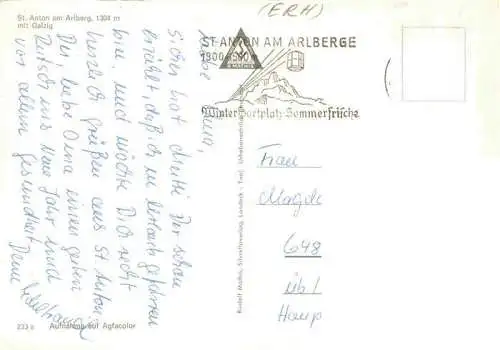 St. Anton am Arlberg, 1304 m
mit Galzig
(ERH)
ST. ANTON AM ARLBERGE
1300
Wintersportplatz-Sommerfrische
Oma,
Sicher hat Dir schon
erzählt daß ich in Urlaub gefahren
bin, und möchte Dich recht
herzlich grüßen aus St. Anton.
Dir, liebe Oma einen guten
Rutsch ins Neue Jahr und
vor allem Gesundheit.
Dein
Frau
Magda
648
üb/
Haup
Rudolf Mathis, Silvrettaverlag, Landeck - Tirol
233 a Aufnahme auf Agfacolor